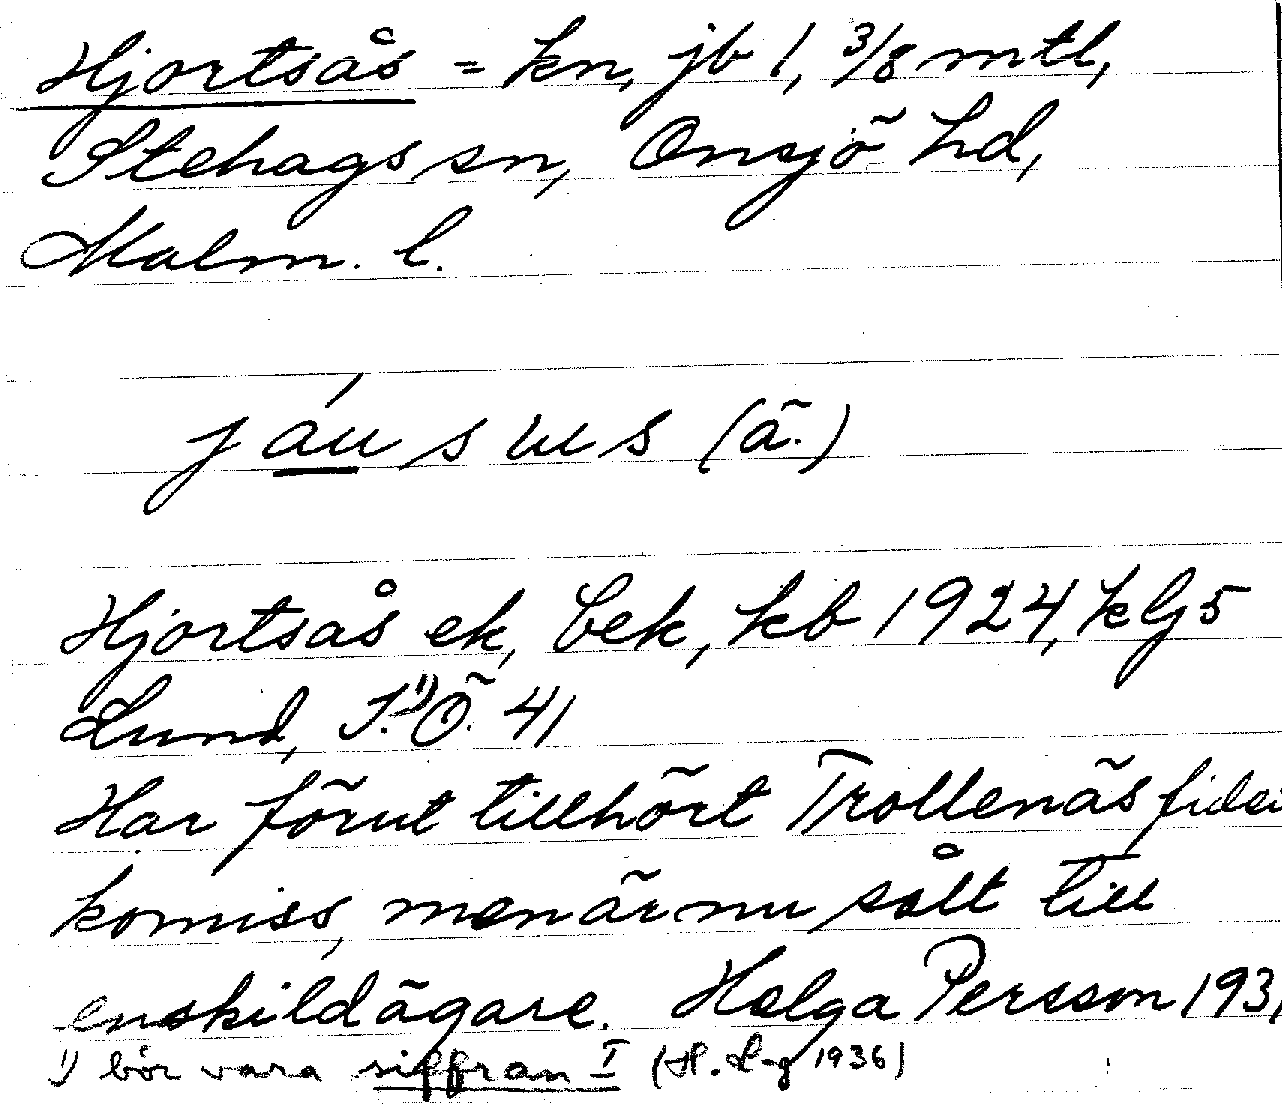 Hjortsås = kn, jb 1, 3/8 mtl,
Stehags sn, Onsjö hd,
Malm. l.
jáusus (ä.)
Hjortsås ek, bek, kb 1924, klj 5
Lund, I.¹⁾Ö. 41
Har förut tillhört Trollenäs fidei
komiss, men är nu sålt till
enskild ägare. Helga Persson 193
1) bör vara siffran I (H. L-g 1936)